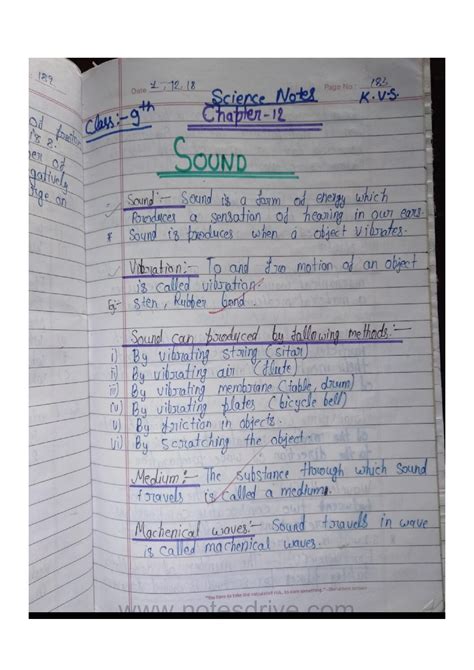 189
Date 1, 12, 18
Page No. 183
Science Notes
K.V.S.
Class:- 9th
Chapter-12
SOUND
Sound:- Sound is a form of energy which
Produces a sensation of hearing in our ears.
* Sound is produces when a object vibrates.
Vibration:- To and fro motion of an object
is called vibration.
Eg:- Rubber band.
Sound can produced by following methods:-
i) By vibrating string (sitar)
ii) By vibrating air (flute)
iii) By vibrating membrane (table, drum)
iv) By vibrating plates (bicycle bell)
v) By friction in objects.
vi) By scratching the object.
Medium:- The substance through which sound
travels is called a medium.
Machenical waves:- Sound travels in wave
is called machenical waves.
www.notesdrive.com